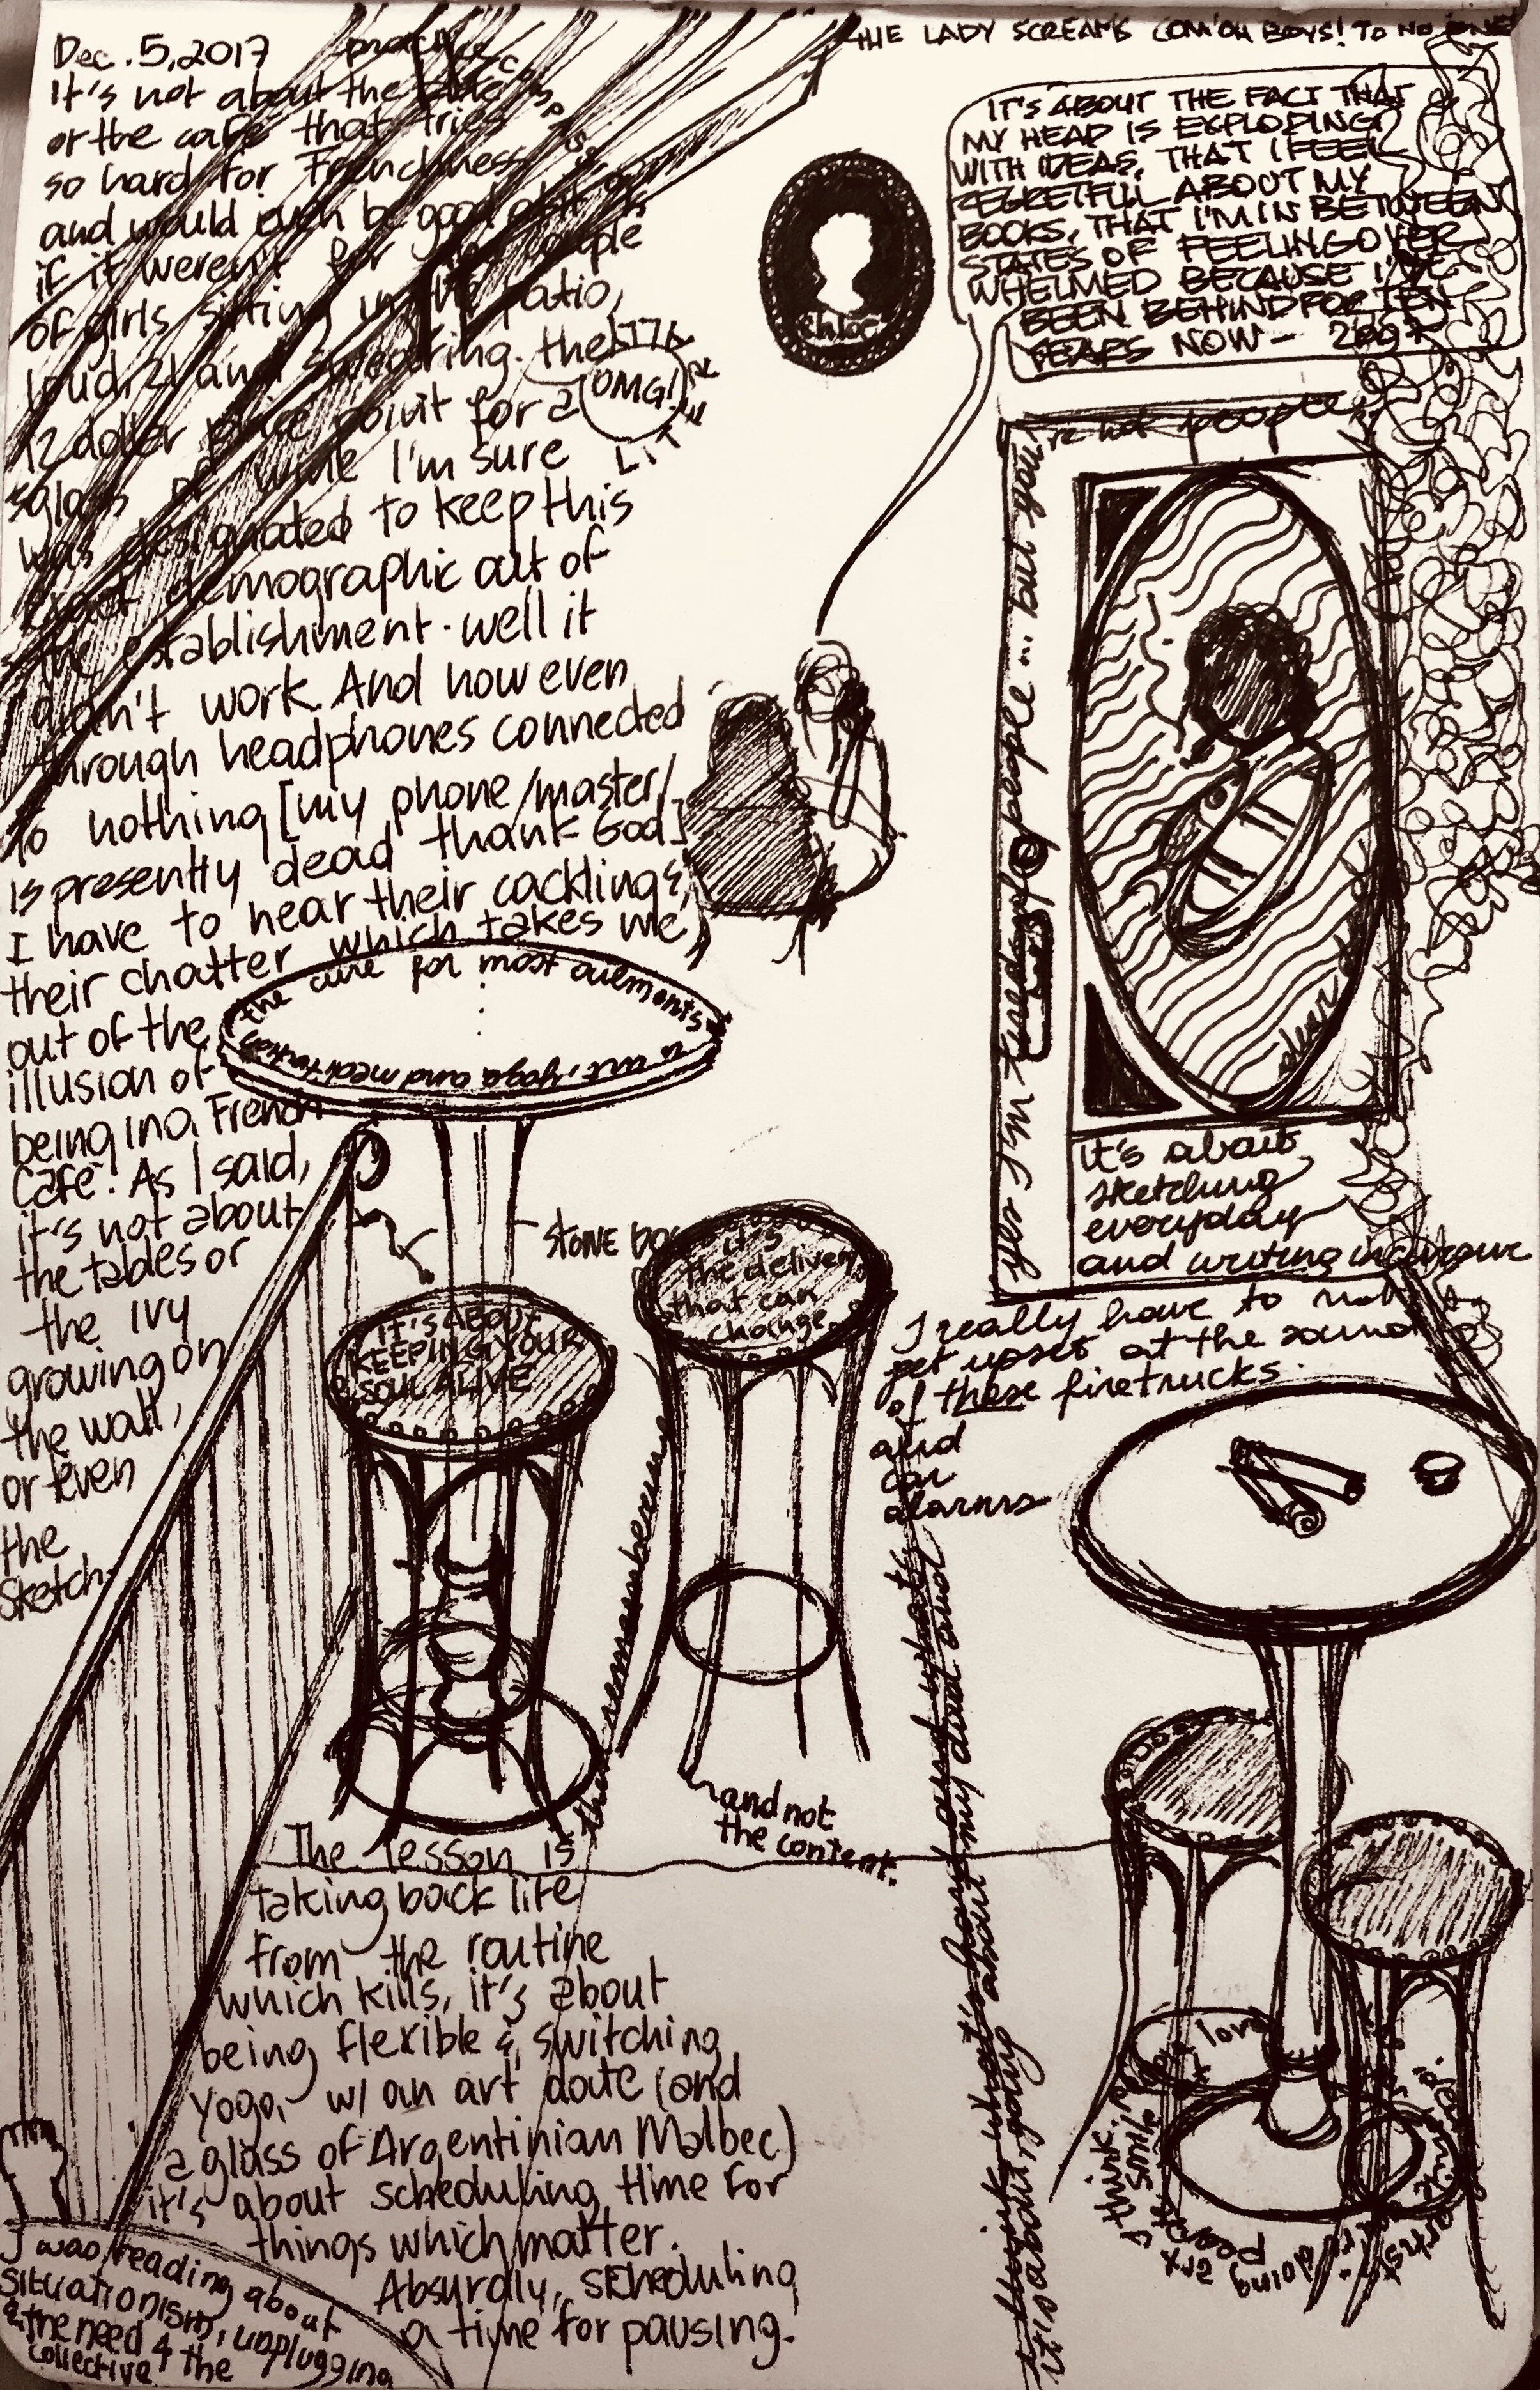 Dec. 5, 2017
It's not about the
or the café that tries
so hard for Frenchness
and would even be good at it
if it weren't for the couple
of girls sitting in the patio,
loud, 21 and swearing. the
12 dollar price point for a
glass of wine I'm sure
was designated to keep this
exact demographic out of
the establishment. well it
didn't work. And now even
through headphones connected
to nothing [my phone/master/
is presently dead thank God]
I have to hear their cackling &
their chatter which takes me
out of the
illusion of
being in a French
Café. As I said,
it's not about
the tables or
the ivy
growing on
the wall,
or even
the
sketch.
practice
OMG!
THE LADY SCREAMS COM'ON BOYS! TO NO ONE
IT'S ABOUT THE FACT THAT
MY HEAD IS EXPLODING
WITH IDEAS, THAT I FEEL
REGRETFUL ABOUT MY
BOOKS, THAT I'M IN BETWEEN
STATES OF FEELING OVER
WHELMED BECAUSE I'VE
BEEN BEHIND FOR TEN
YEARS NOW -
Chloe
yes I'm tired of people ... but you're not people
the cure for most ailements
is art, yoga and meditation
it's about
sketching
everyday
and writing
STONE
IT'S ABOUT
KEEPING YOUR
SOUL ALIVE
it's
the delivery
that can
change
and not
the content.
I really have to not
get upset at the sound
of these firetrucks
and
car
alarms
then remember
The lesson is
taking back life
from the routine
which kills, it's about
being flexible & switching
yoga w/ an art date (and
a glass of Argentinian Malbec)
it's about scheduling time for
things which matter.
Absurdly, scheduling
a time for pausing.
I think what's hard and what
it is about, going about my day and
I love
I think
smile
people
art
doing
I was reading about
situationism, unplugging
& the need 4 the
collective